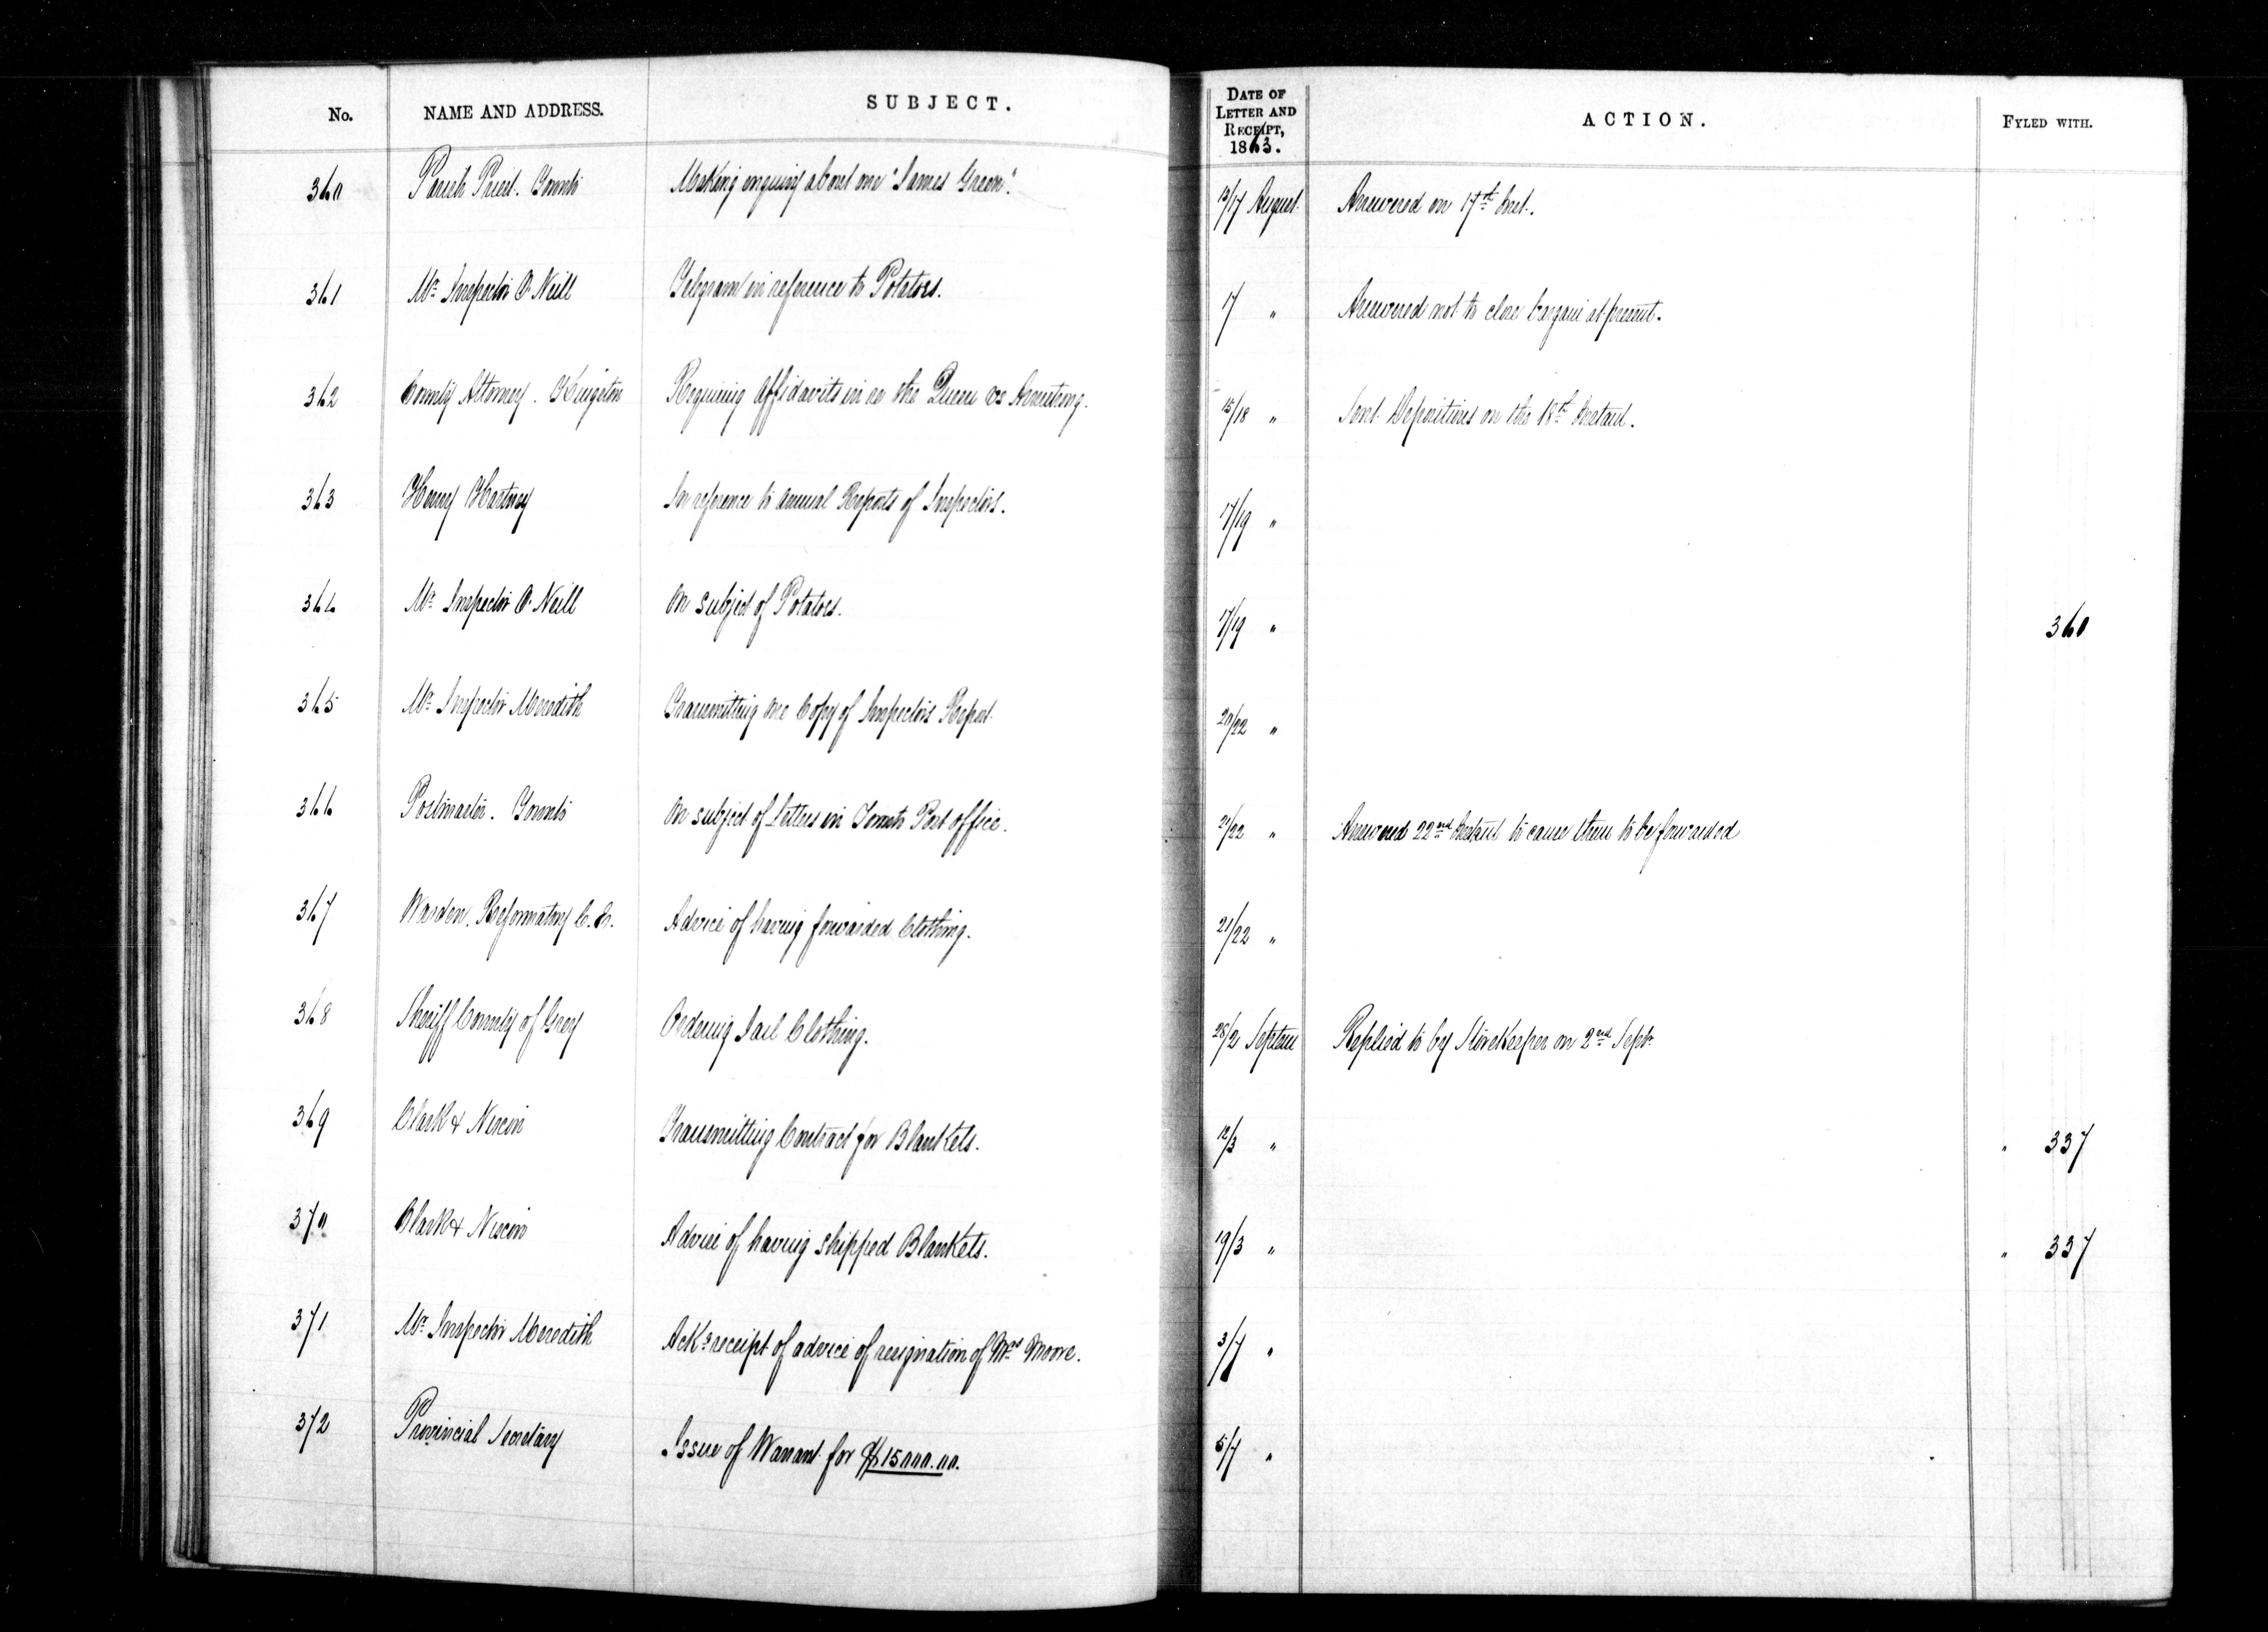 No. NAME AND ADDRESS. SUBJECT. DATE OF LETTER AND RECEIPT, 1863. ACTION. FYLED WITH.
360 Parish Priest. Toronto Making enquiry about one "James Green". 13/17 August Answered on 17th Inst.
361 Mr Inspector O'Neill Telegram in reference to Potatoes. 17 " Answered not to close bargain at present.
362 County Attorney. Kingston Requiring Affidavits in re the Queen vs Armstrong. 15/18 " Sent Depositions on the 18th Instant.
363 Henry Hartney In reference to annual Reports of Inspectors. 17/19 "
364 Mr Inspector O'Neill On subject of Potatoes. 17/19 " 360
365 Mr Inspector Meredith Transmitting one Copy of Inspectors Report. 20/22 "
366 Postmaster. Toronto On subject of Letters in Toronto Post office. 21/22 " Answered 22nd Instant to cause them to be forwarded
367 Warden. Reformatory Advice of having forwarded Clothing. 21/22 "
368 Sheriff County of Grey Ordering Jail Clothing. 28/2 Septem Replied to by StoreKeeper on 2nd Septr
369 Clark & Transmitting Contract for Blankets. 12/3 " " 337
370 Clark & Advice of having shipped Blankets. 19/3 " " 337
371 Mr Inspector Meredith Ackg receipt of advice of resignation of Mrs Moore. 3/7 "
372 Provincial Secretary Issue of Warrant for $15000.00. 5/7 "